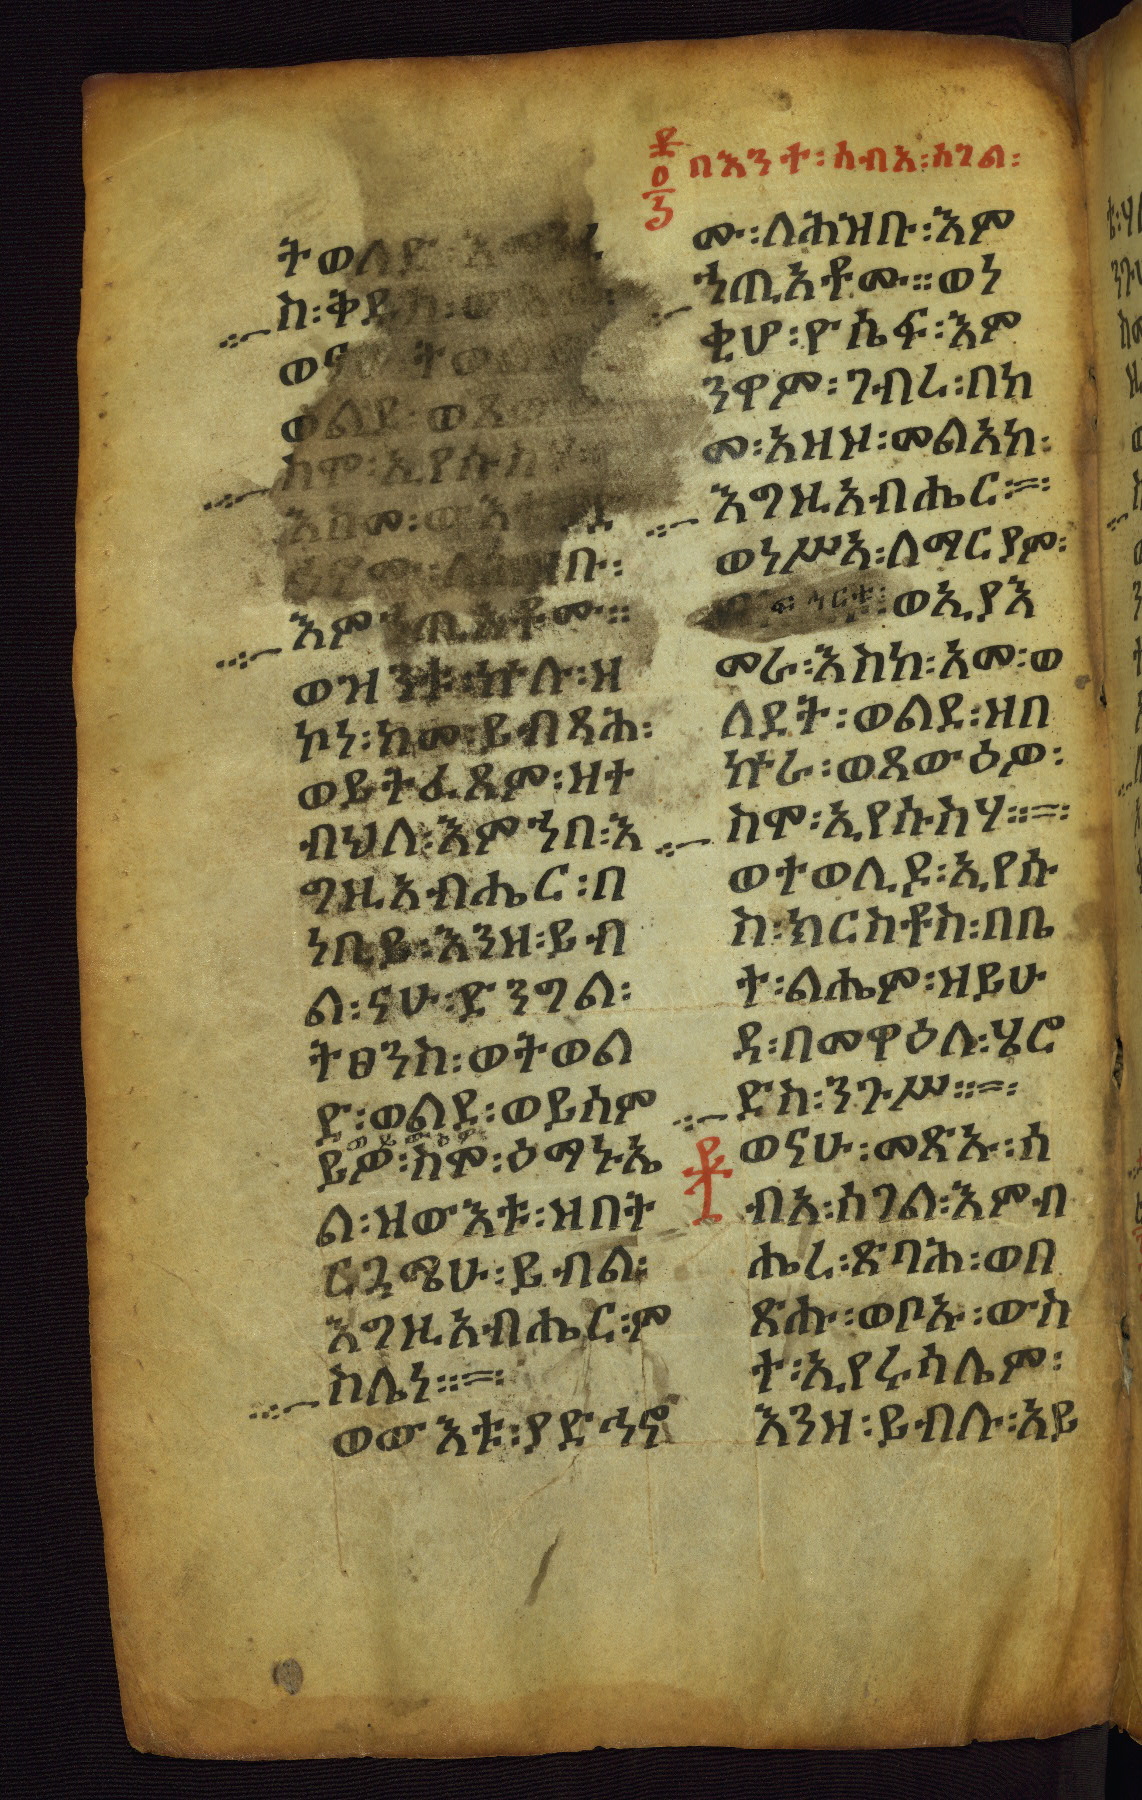 በእንተ፡ሰብአ፡ሰገል፡
ትወለድ፡እመንፈ
ስ፡ቅዱስ፡
ወናሁ፡ትወልድ፡
ወልደ፡ወጸውዕ፡
ስሞ፡ኢየሱስሃ፡
እስመ፡ውእቱ፡
ለሕዝቡ፡
እምኀጢአቶሙ።
ወዝንቱ፡ኵሉ፡ዘ
ኮነ፡ከመ፡ይብጻሕ፡
ወይትፈጸም፡ዘተ
ብህለ፡እምኀበ፡እ
ግዚአብሔር፡በ
ነቢይ፡እንዘ፡ይብ
ል፡ናሁ፡ድንግል፡
ትፀንስ፡ወትወል
ድ፡ወልደ፡ወይሰም
ይዎ፡ስሞ፡ዕማኑኤ
ል፡ዝውእቱ፡ዘበት
ርጓሜሁ፡ይብል፡
እግዚአብሔር፡ም
ስሌነ።
ወውእቱ፡ያድኅኖ
ሙ፡ለሕዝቡ፡እም
ኀጢአቶሙ።ወነ
ቂሆ፡ዮሴፍ፡እም
ንዋም፡ገብረ፡በከ
መ፡አዘዞ፡መልአከ፡
እግዚአብሔር።
ወነሥአ፡ለማርያም፡
ፍኅርቱ፡ወኢያእ
መራ፡እስከ፡አመ፡ወ
ለደት፡ወልደ፡ዘበ
ኵራ፡ወጸውዕዎ፡
ስሞ፡ኢየሱስሃ።
ወተወሊዶ፡ኢየሱ
ስ፡ክርስቶስ፡በቤ
ተ፡ልሔም፡ዘይሁ
ዳ፡በመዋዕለ፡ሄሮ
ድስ፡ንጉሥ።
ወናሁ፡መጽኡ፡ሰ
ብአ፡ሰገል፡እምብ
ሔረ፡ጽባሕ፡ወበ
ጽሑ፡ወቦኡ፡ውስ
ተ፡ኢየሩሳሌም፡
እንዘ፡ይብሉ፡አይ